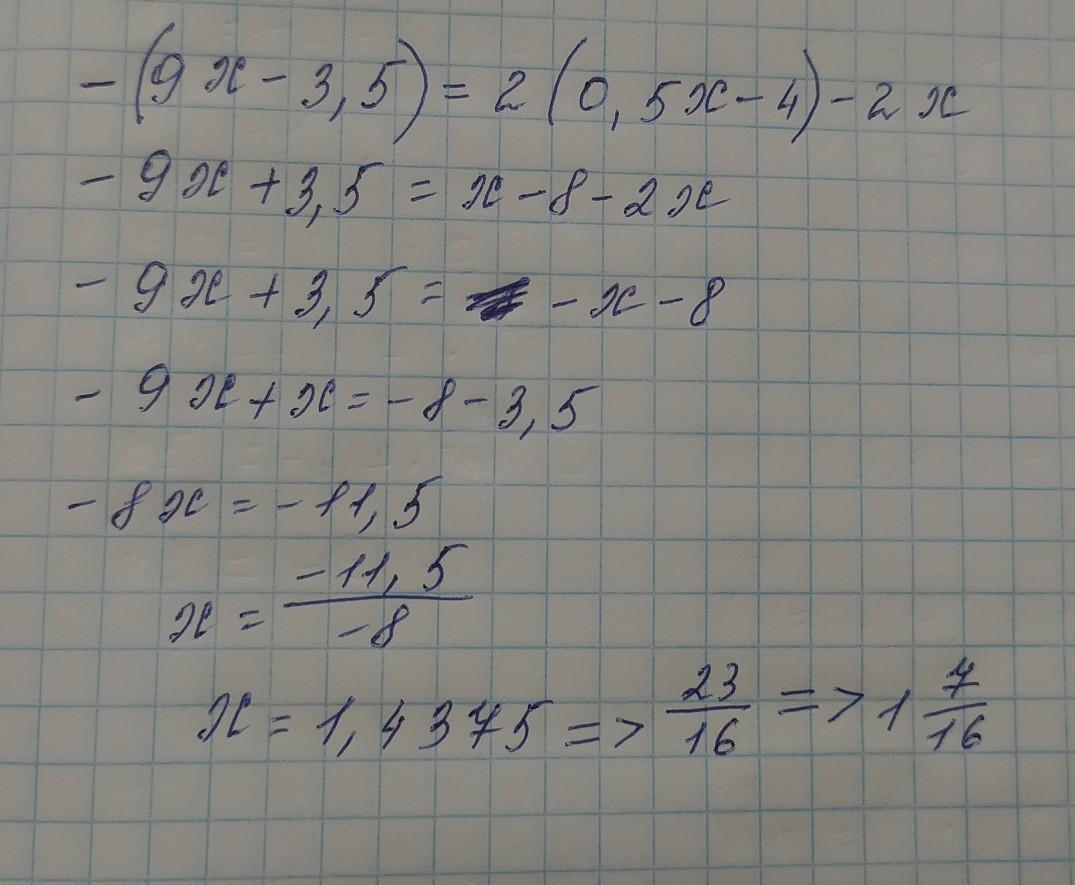 -(9x-3,5)=2(0,5x-4)-2x
-9x+3,5=x-8-2x
-9x+3,5= -x-8
-9x+x=-8-3,5
-8x=-11,5
x=\frac{-11,5}{-8}
x=1,4375=>\frac{23}{16}=>1\frac{7}{16}